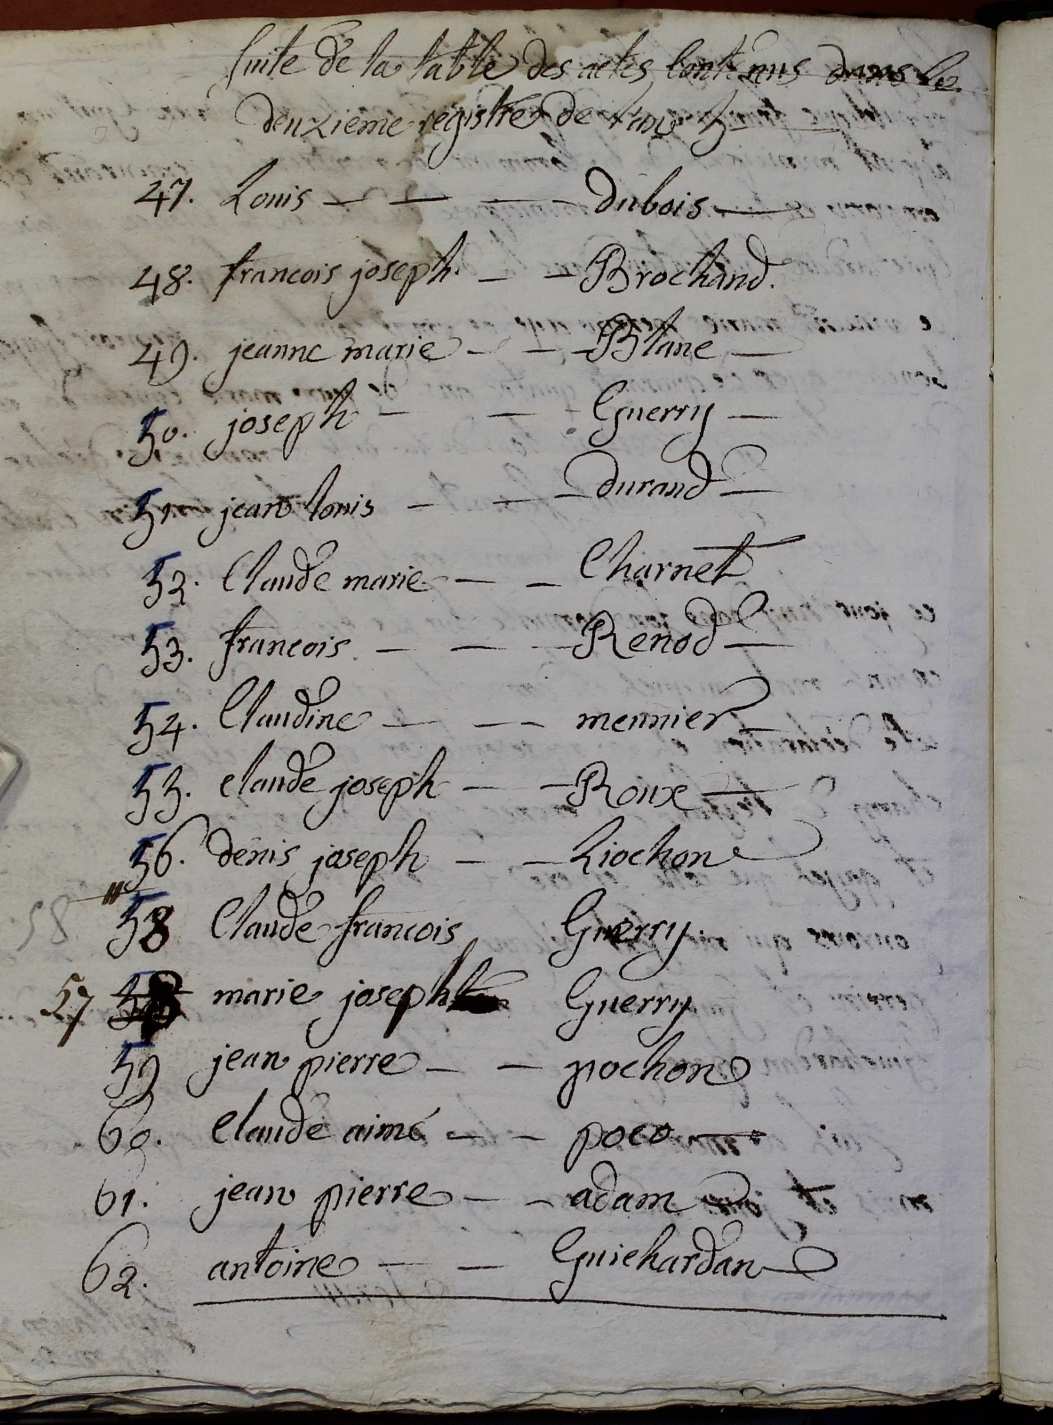 Suite de la table des actes Contenus dans le
deuxieme registre de l'an 7
47. Louis Dubois
48. francois joseph Brochand.
49. jeanne marie Blanc
50. joseph Guerry
51. jean louis durand
52. Claude marie Charnet
53. francois Renod
54. Claudine meunier
55. claude joseph Roux
56. denis joseph Liochon
58 58 Claude francois Guerry.
57 marie joseph Guerry
59 jean pierre pochon
60. Claude aimé poco
61. jean pierre adam
62. antoine Guichardan